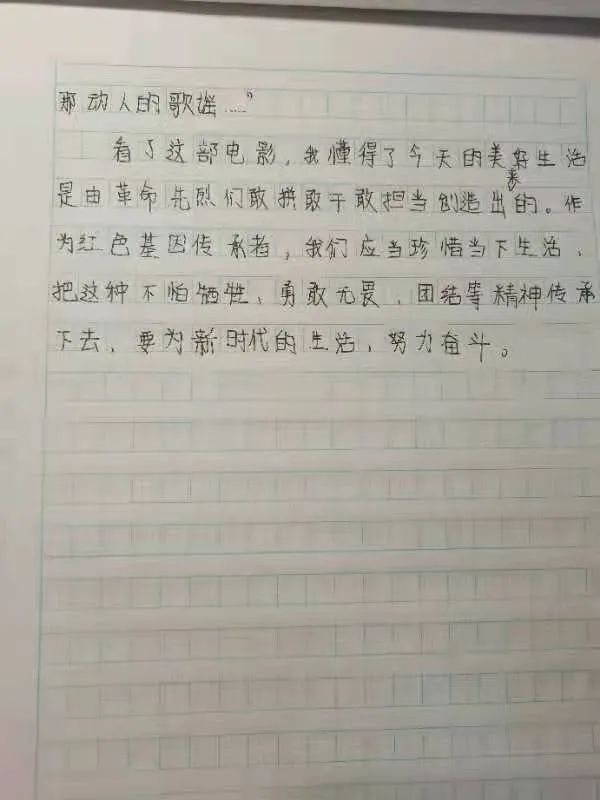 那动人的歌谣……”
看了这部电影，我懂得了今天的美好生活
是由革命先烈们敢拼敢干敢担当创造出来的。作
为红色基因传承者，我们应当珍惜当下生活，
把这种不怕牺牲、勇敢无畏、团结等精神传承
下去，要为新时代的生活，努力奋斗。